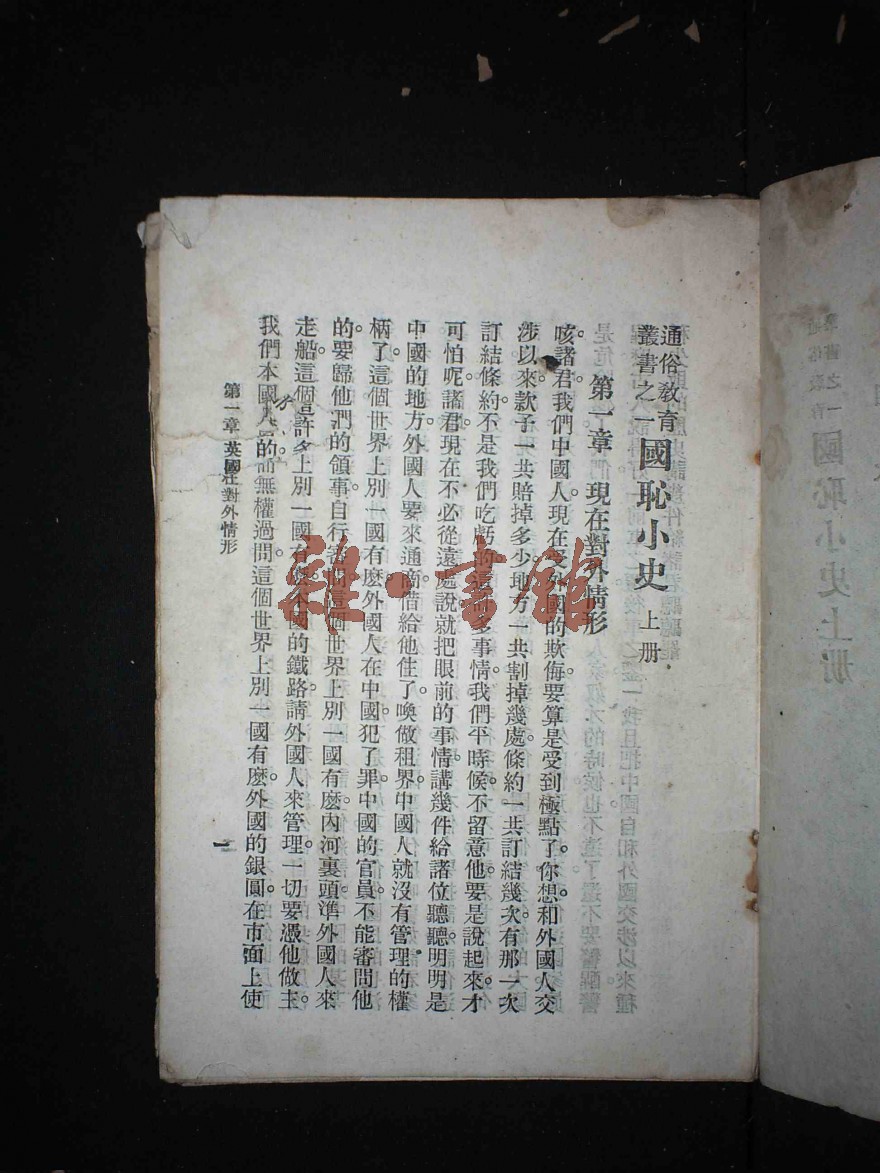 通俗教育
叢書之一
國恥小史 上册
第一章 現在對外情形
咳。諸君。我們中國人。現在受外國的欺侮。要算是受到極點了。你想和外國人交
涉以來。款子一共賠掉多少。地方一共割掉幾處。條約一共訂結幾次。有那一次
訂結條約。不是我們吃虧的。這許多事情。我們平時候不留意他。要是說起來。才
可怕呢。諸君。現在不必從遠處說。就把眼前的事情。講幾件給諸位聽聽。明明是
中國的地方。外國人要來通商。借給他住了。喚做租界。中國人就沒有管理的權
柄了。這個世界上別一國有麼。外國人在中國犯了罪。中國的官員。不能審問他
的。要歸他們的領事自行審問。這個世界上別一國有麼。內河裏頭。準外國人來
走船。這個世界上別一國有麼。本國的鐵路。請外國人來管理。一切要憑他做主。
我們本國人 的 無權過問。這個世界上別一國有麼。外國的銀圓。在市面上使
第一章 英國在對外情形
一
國恥小史上册
雜·書館